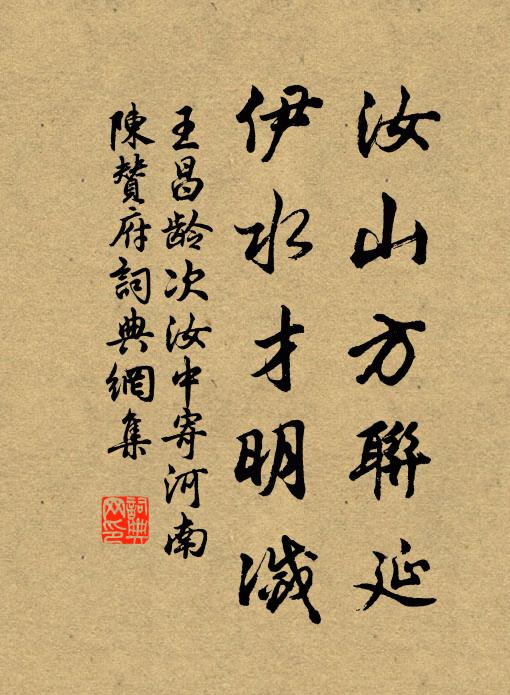 汝山方聯延
伊水才明滅
王昌齡次汝中寄河南
陳贊府詞典網集
詞典
网印